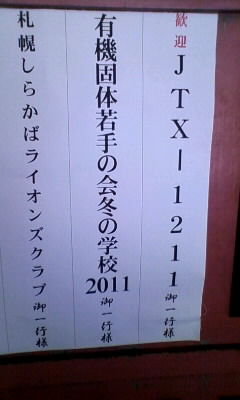 歓迎
JTX-1211御一行様
有機固体若手の会冬の学校2011御一行様
札幌しらかばライオンズクラブ御一行様